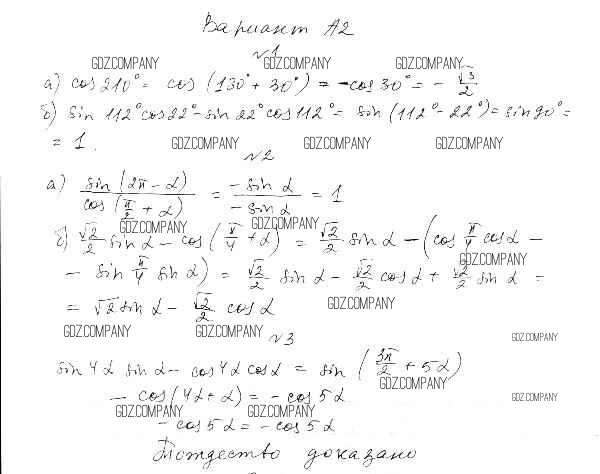 Вариант А2
GDZ.COMPANY GDZ.COMPANY GDZ.COMPANY
№1
а) cos 210° = cos (130° + 30°) = -cos 30° = - √3/2
б) sin 112° cos 22° - sin 22° cos 112° = sin (112° - 22°) = sin 90° =
= 1.
GDZ.COMPANY GDZ.COMPANY GDZ.COMPANY
№2
а) sin (2π - α) / cos (π/2 + α) = -sin α / -sin α = 1
GDZ.COMPANY GDZ.COMPANY
б) √2/2 sin α - cos (π/4 + α) = √2/2 sin α - (cos π/4 cos α -
GDZ.COMPANY
- sin π/4 sin α) = √2/2 sin α - √2/2 cos α + √2/2 sin α =
= √2 sin α - √2/2 cos α
GDZ.COMPANY
GDZ.COMPANY GDZ.COMPANY GDZ.COMPANY
№3
sin 4α sin α - cos 4α cos α = sin (3π/2 + 5α)
GDZ.COMPANY
- cos (4α + α) = - cos 5α
GDZ.COMPANY
GDZ.COMPANY GDZ.COMPANY
- cos 5α = - cos 5α
Тождество доказано